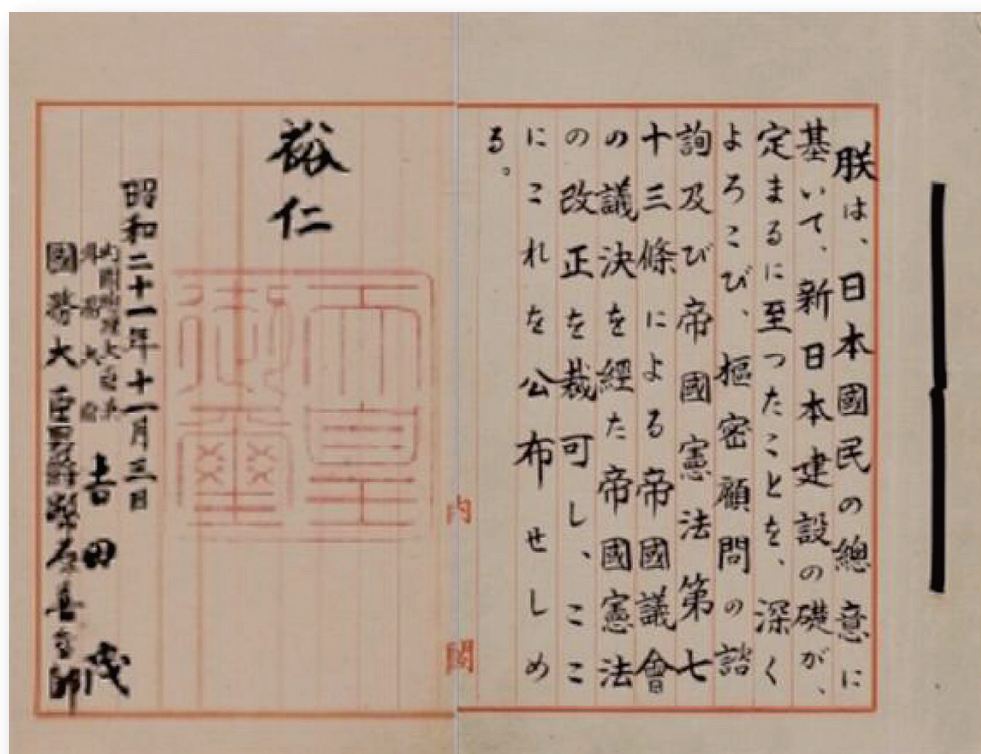 朕は、日本國民の總意に
基いて、新日本建設の礎が、
定まるに至つたことを、深く
よろこび、樞密顧問の諮
詢及び帝國憲法第七
十三條による帝國議會
の議決を經た帝國憲法
の改正を裁可し、ここ
にこれを公布せしめ
る。
裕仁
天皇
御璽
昭和二十一年十一月三日
内閣總理大臣兼
外務大臣
吉田茂
國務大臣男爵幣原喜重郎
内閣